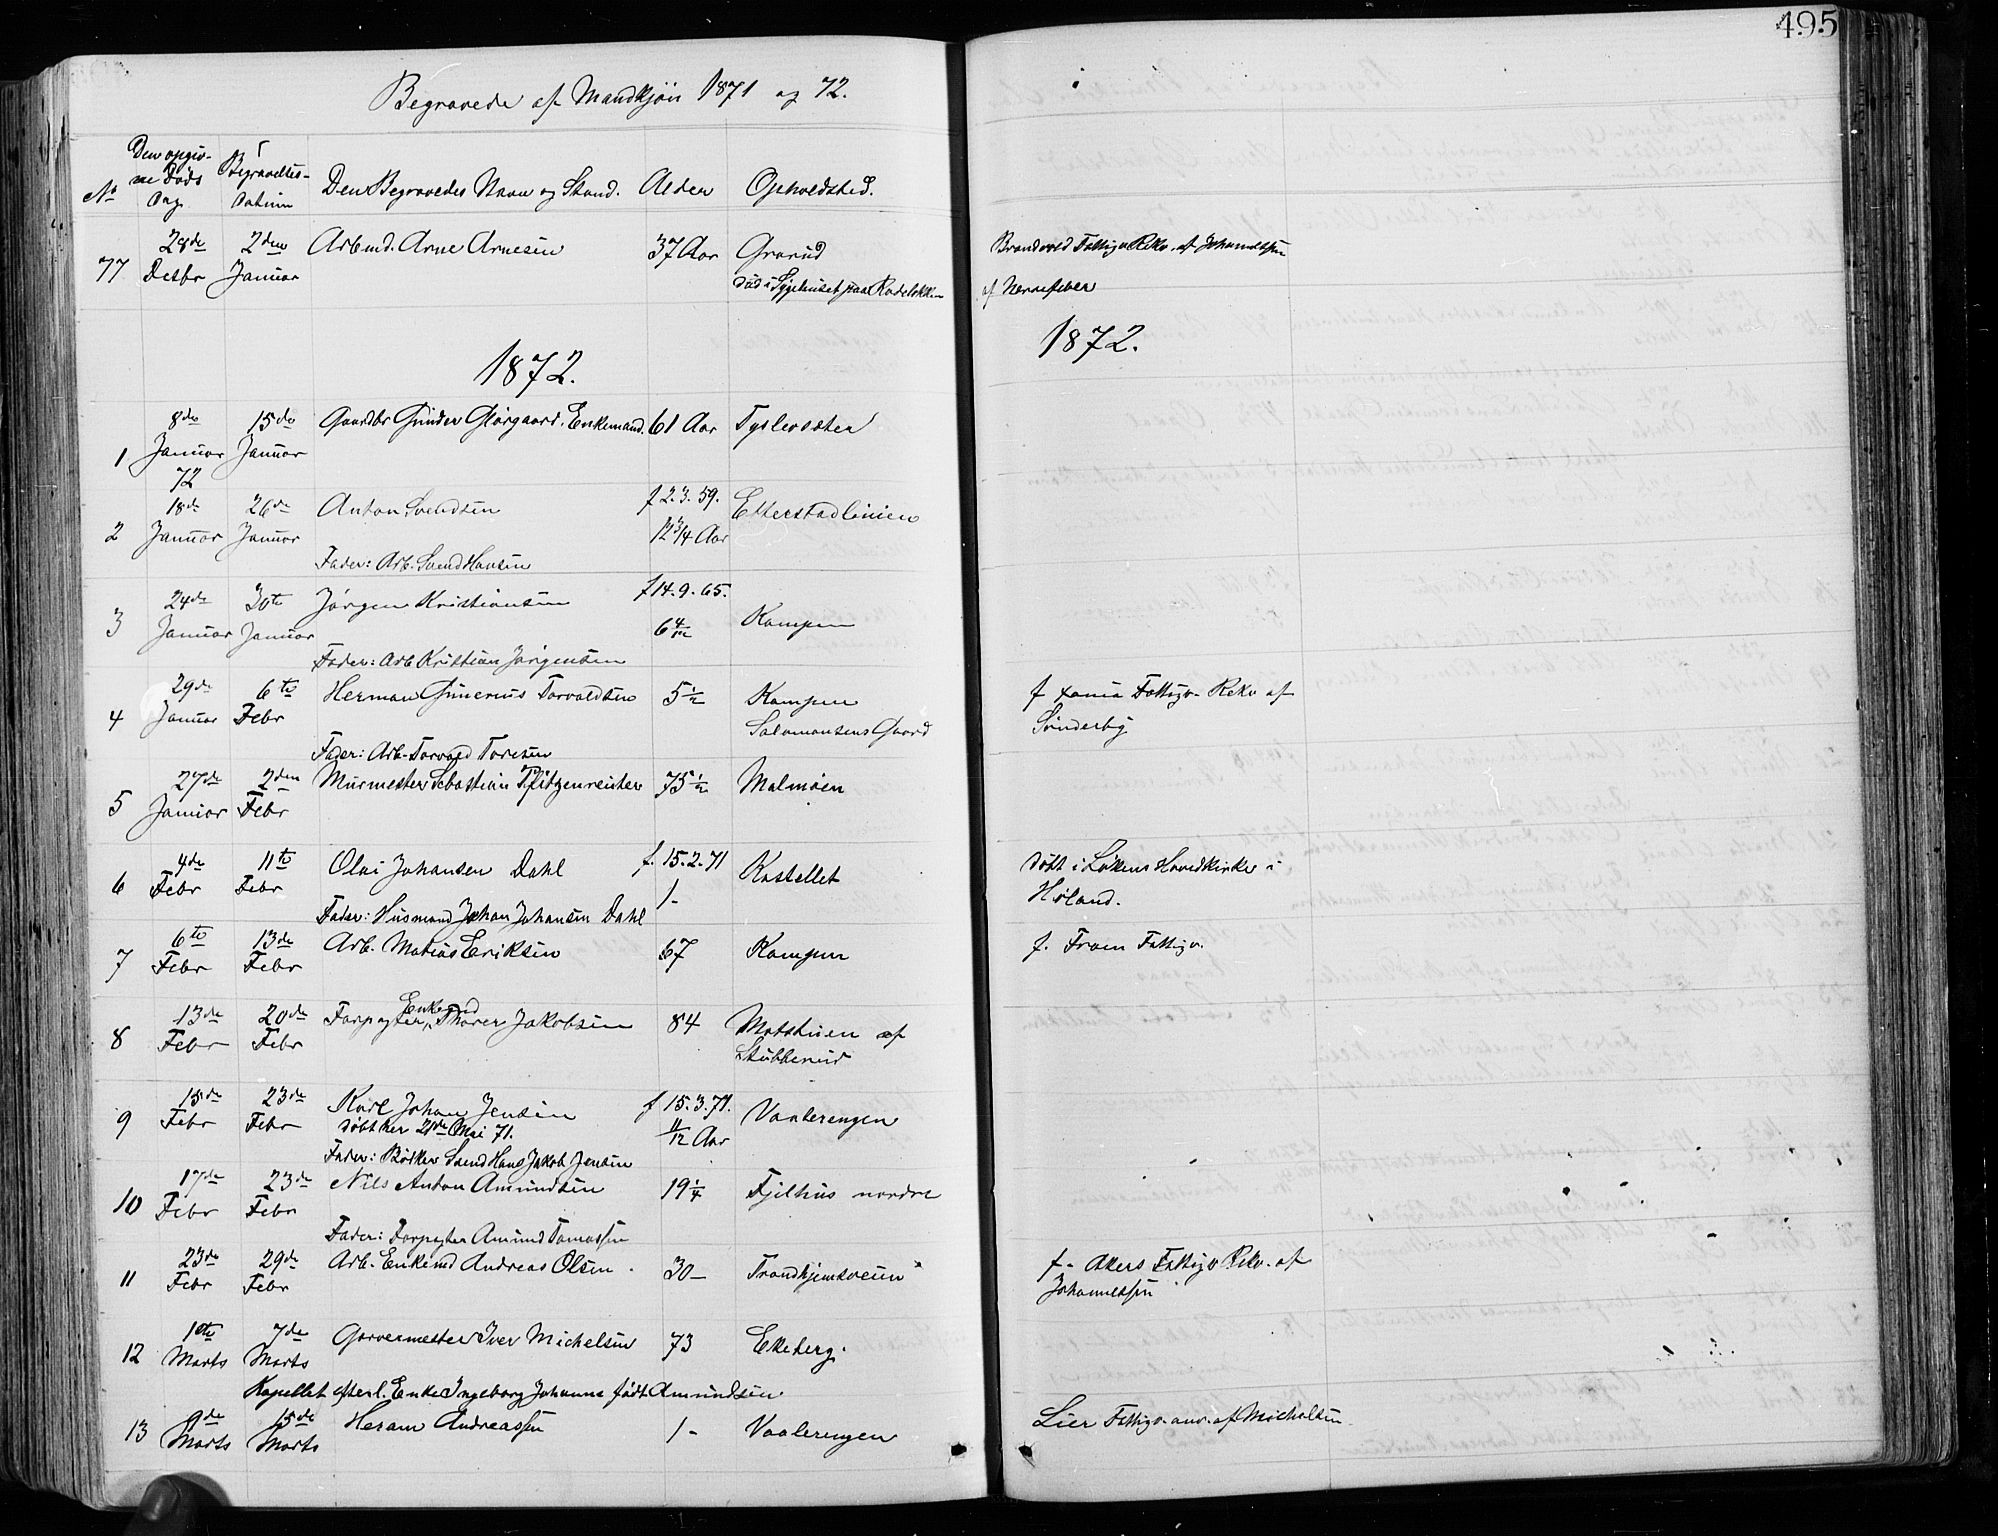 495
Begravede af Mandkjön 1871 og 72.
No
Den opgivne Döds Dag
Begravelses-Datum
Den Begravedes Navn og Stand.
Alder
Opholdsted.
77 28de Decbr 2den Januar Arbmd. Arne Arnesen 37 Aar Grorud
död i Sygehuset paa Rodelökken
Brandvold Fattigv. Rekv. af Johannessen
af Nervefeber
1872.
1872.
1 8de Januar 72 15de Januar Gaardbr Gunder Enkemand. 61 Aar
2 18de Januar 26de Januar Anton Svendsen f 2.3.59. 12 3/4 Aar Etterstadlinien
Fader: Arb. Svend Hansen
3 24de Januar 30te Januar Jörgen Kristiansen f 14.9.65. 6 4/12 Kampen
Fader: Arb Kristian Jörgensen
4 29de Januar 6te Febr Herman Gunerius Torvaldsen 5 1/2 Kampen
Salomonsens Gaard
Fader: Arb. Torvald Toresen
f Xania Fattigv. Rekv af
Sönderby
5 27de Januar 2den Febr Murmester Sebastian Pfitzenreuter 75 1/2 Malmöen
6 4de Febr 11te Febr Olai Johansen Dahl f. 15.2.71 1- Kastellet
Fader: Husmand Johan Johansen Dahl
döbt i Lökens Hovedkirke i
Höland.
7 6te Febr 13de Febr Arb. Matias Eriksen 67 Kampen
f. Fattigv.
8 13de Febr 20de Febr Forpagter, Enkemd Thorer Jakobsen 84 af
Stubberud
9 15de Febr 23de Febr Karl Johan Jensen f 15.3.71. 11/12 Aar Vaalerengen
döbt her 21de Mai 71.
Fader: Bödker Svend Hans Jakob Jensen
10 17de Febr 23de Febr Nils Anton Amundsen 19 1/4 Fjelhus nordre
Fader: Forpagter Amund Tomassen
11 23de Febr 29de Febr Arb. Enkemd Andreas Olsen. 30- Trondhjemsveien
f. Akers Fattigv Rekv. af
Johannessen
12 1ste Marts 7de Marts Garvermester Iver Michelsen 73 Ekeberg.
Kapellet efterl. Enke Ingeborg Johanne födt Amundsen
13 9de Marts 15de Marts Heram Andreassen 1- Vaalerengen
Lier Fattigv. anv. af Michelsen